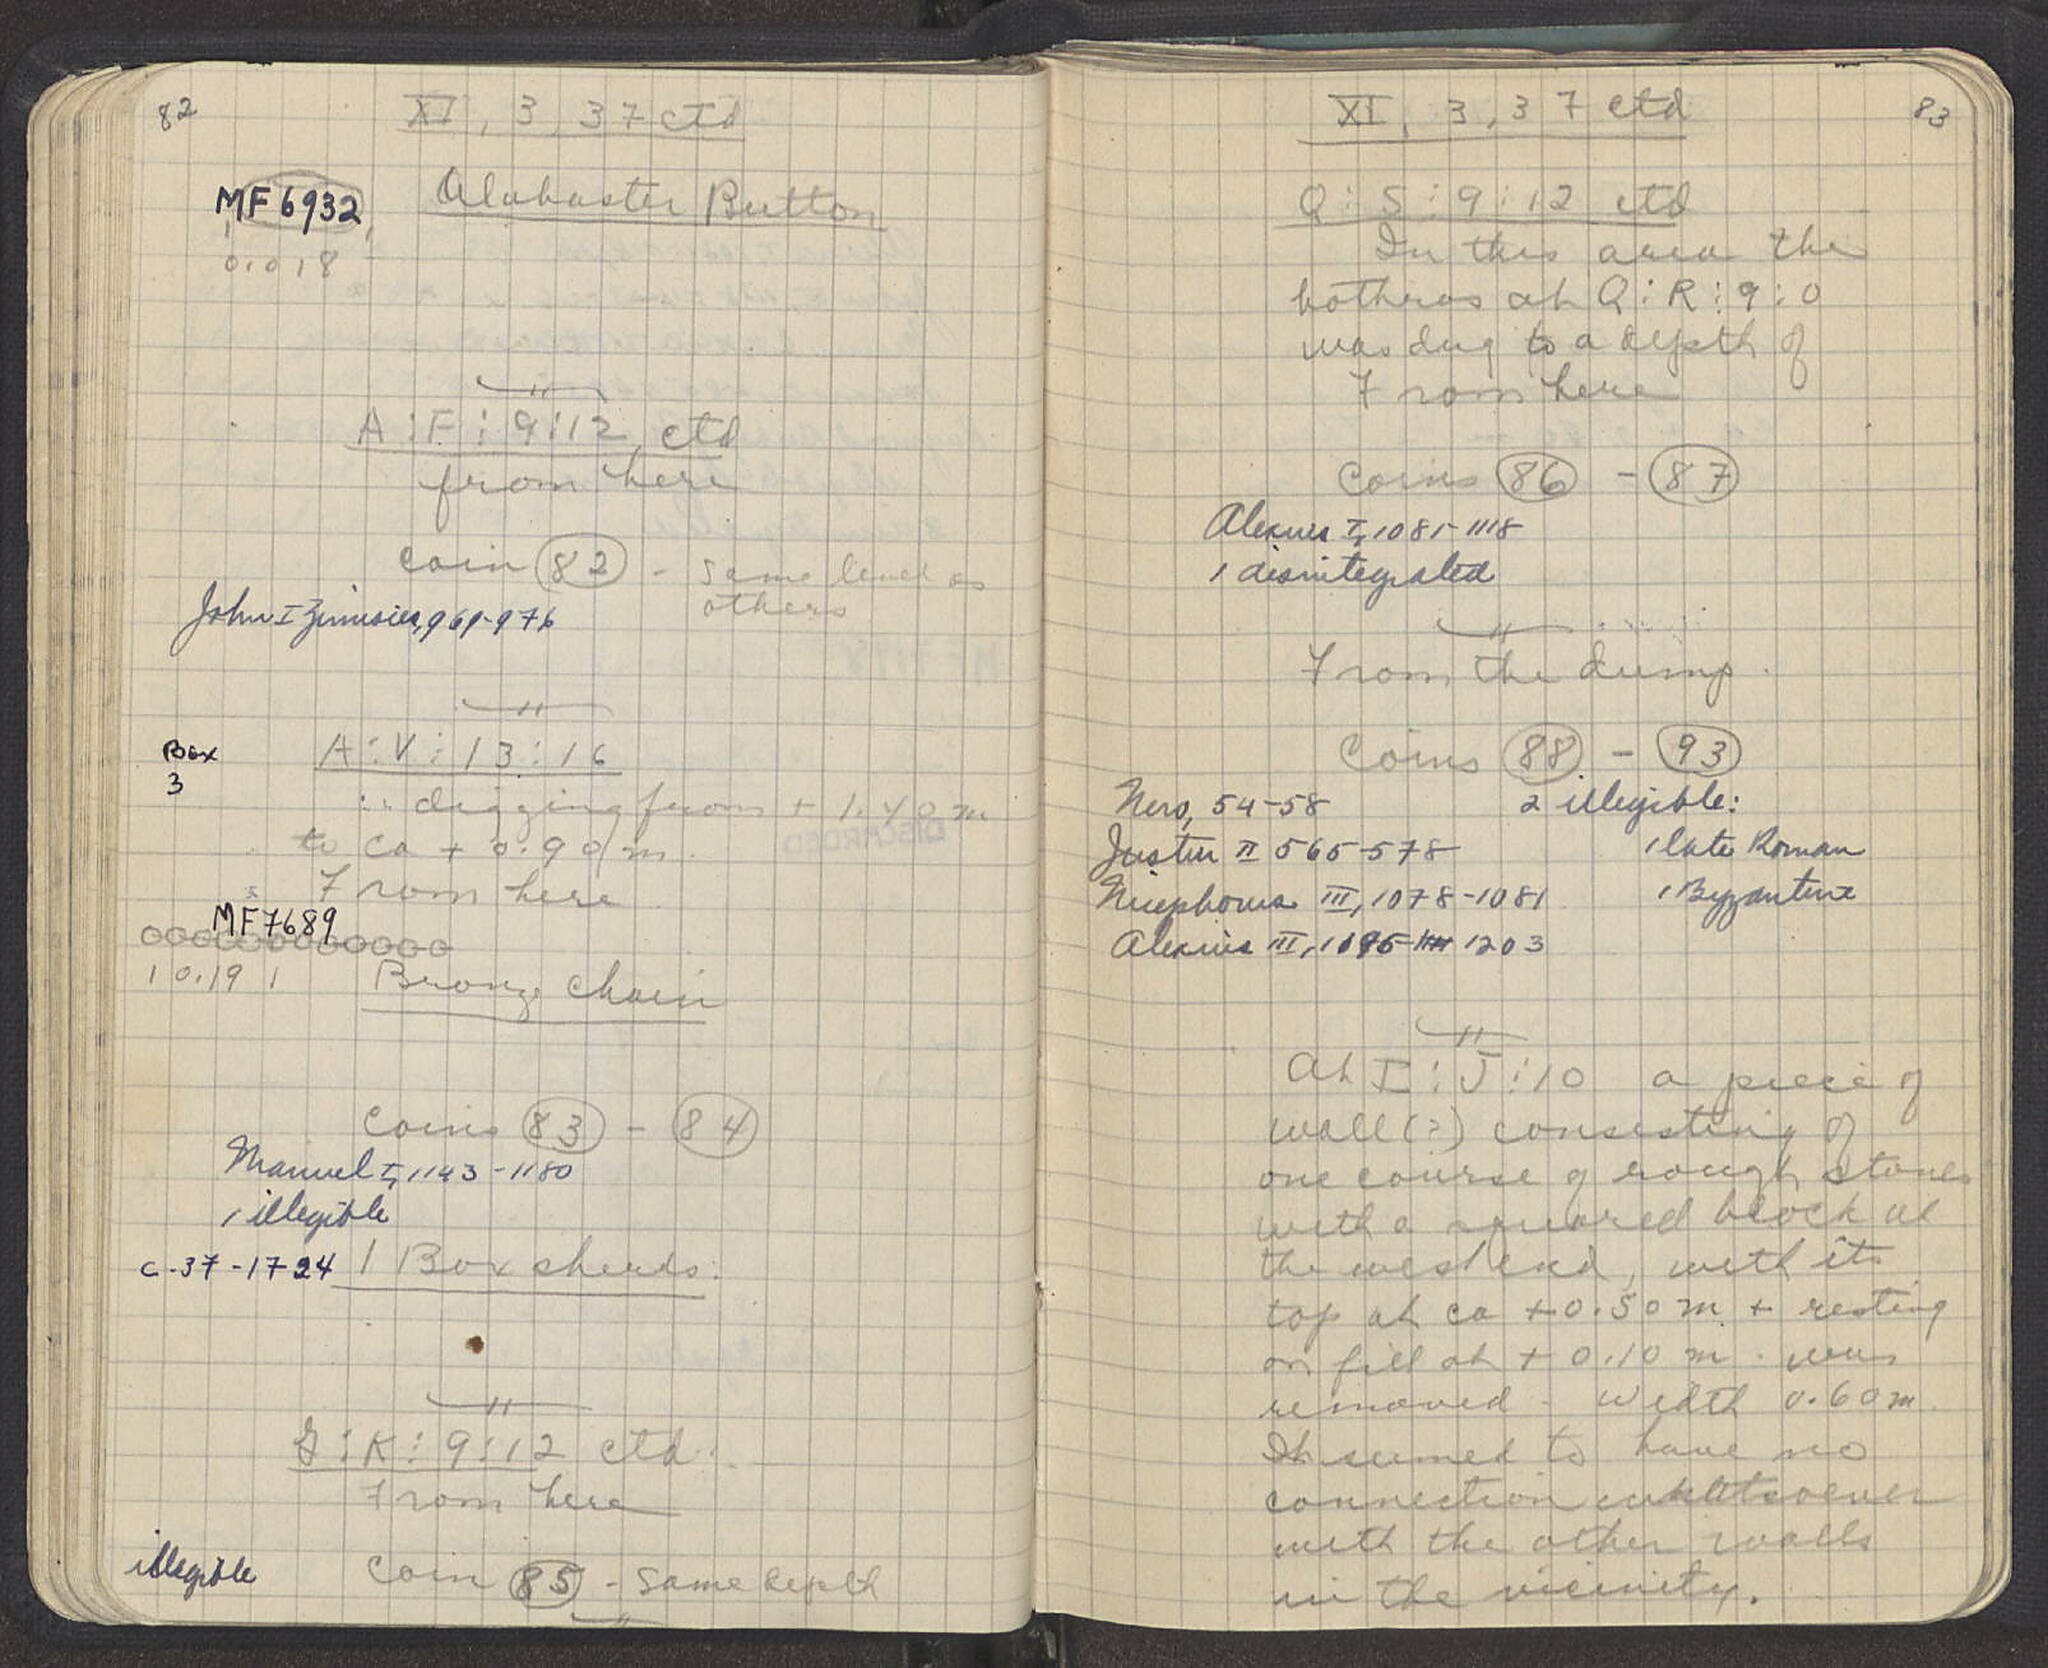 82
XI, 3, 37 ctd
MF 6932
Alabaster Button
0.018
A:F:9:12, ctd
from here
coin 82 - same level as
others
John I Zimisces, 969-976
Box
3
A:V:13:16
digging from + 1.40 m
to ca + 0.90 m.
From here
MF 7689
10.191
Bronze chain
coins 83 - 84
Manuel I, 1143-1180
1 illegible
C-37-1724
1 Box sherds.
G:K:9:12 ctd.
From here
illegible
coin 85 - same depth
83
XI, 3, 37 ctd
Q:S:9:12 ctd
In this area the
bothros at Q:R:9:0
was dug to a depth of
From here
Coins 86 - 87
Alexius I, 1081-1118
1 disintegrated
From the dump.
Coins 88 - 93
Nero, 54-58
2 illegible:
Justin II 565-578
1 late Roman
Nicephorus III, 1078-1081
1 Byzantine
Alexius III, 1195-1203
At I:J:10 a piece of
wall (?) consisting of
one course of rough stones
with a squared block at
the west end, with its
top at ca +0.50 m + resting
on fill at + 0.10 m. was
removed - Width 0.60 m.
It seemed to have no
connection whatsoever
with the other walls
in the vicinity.